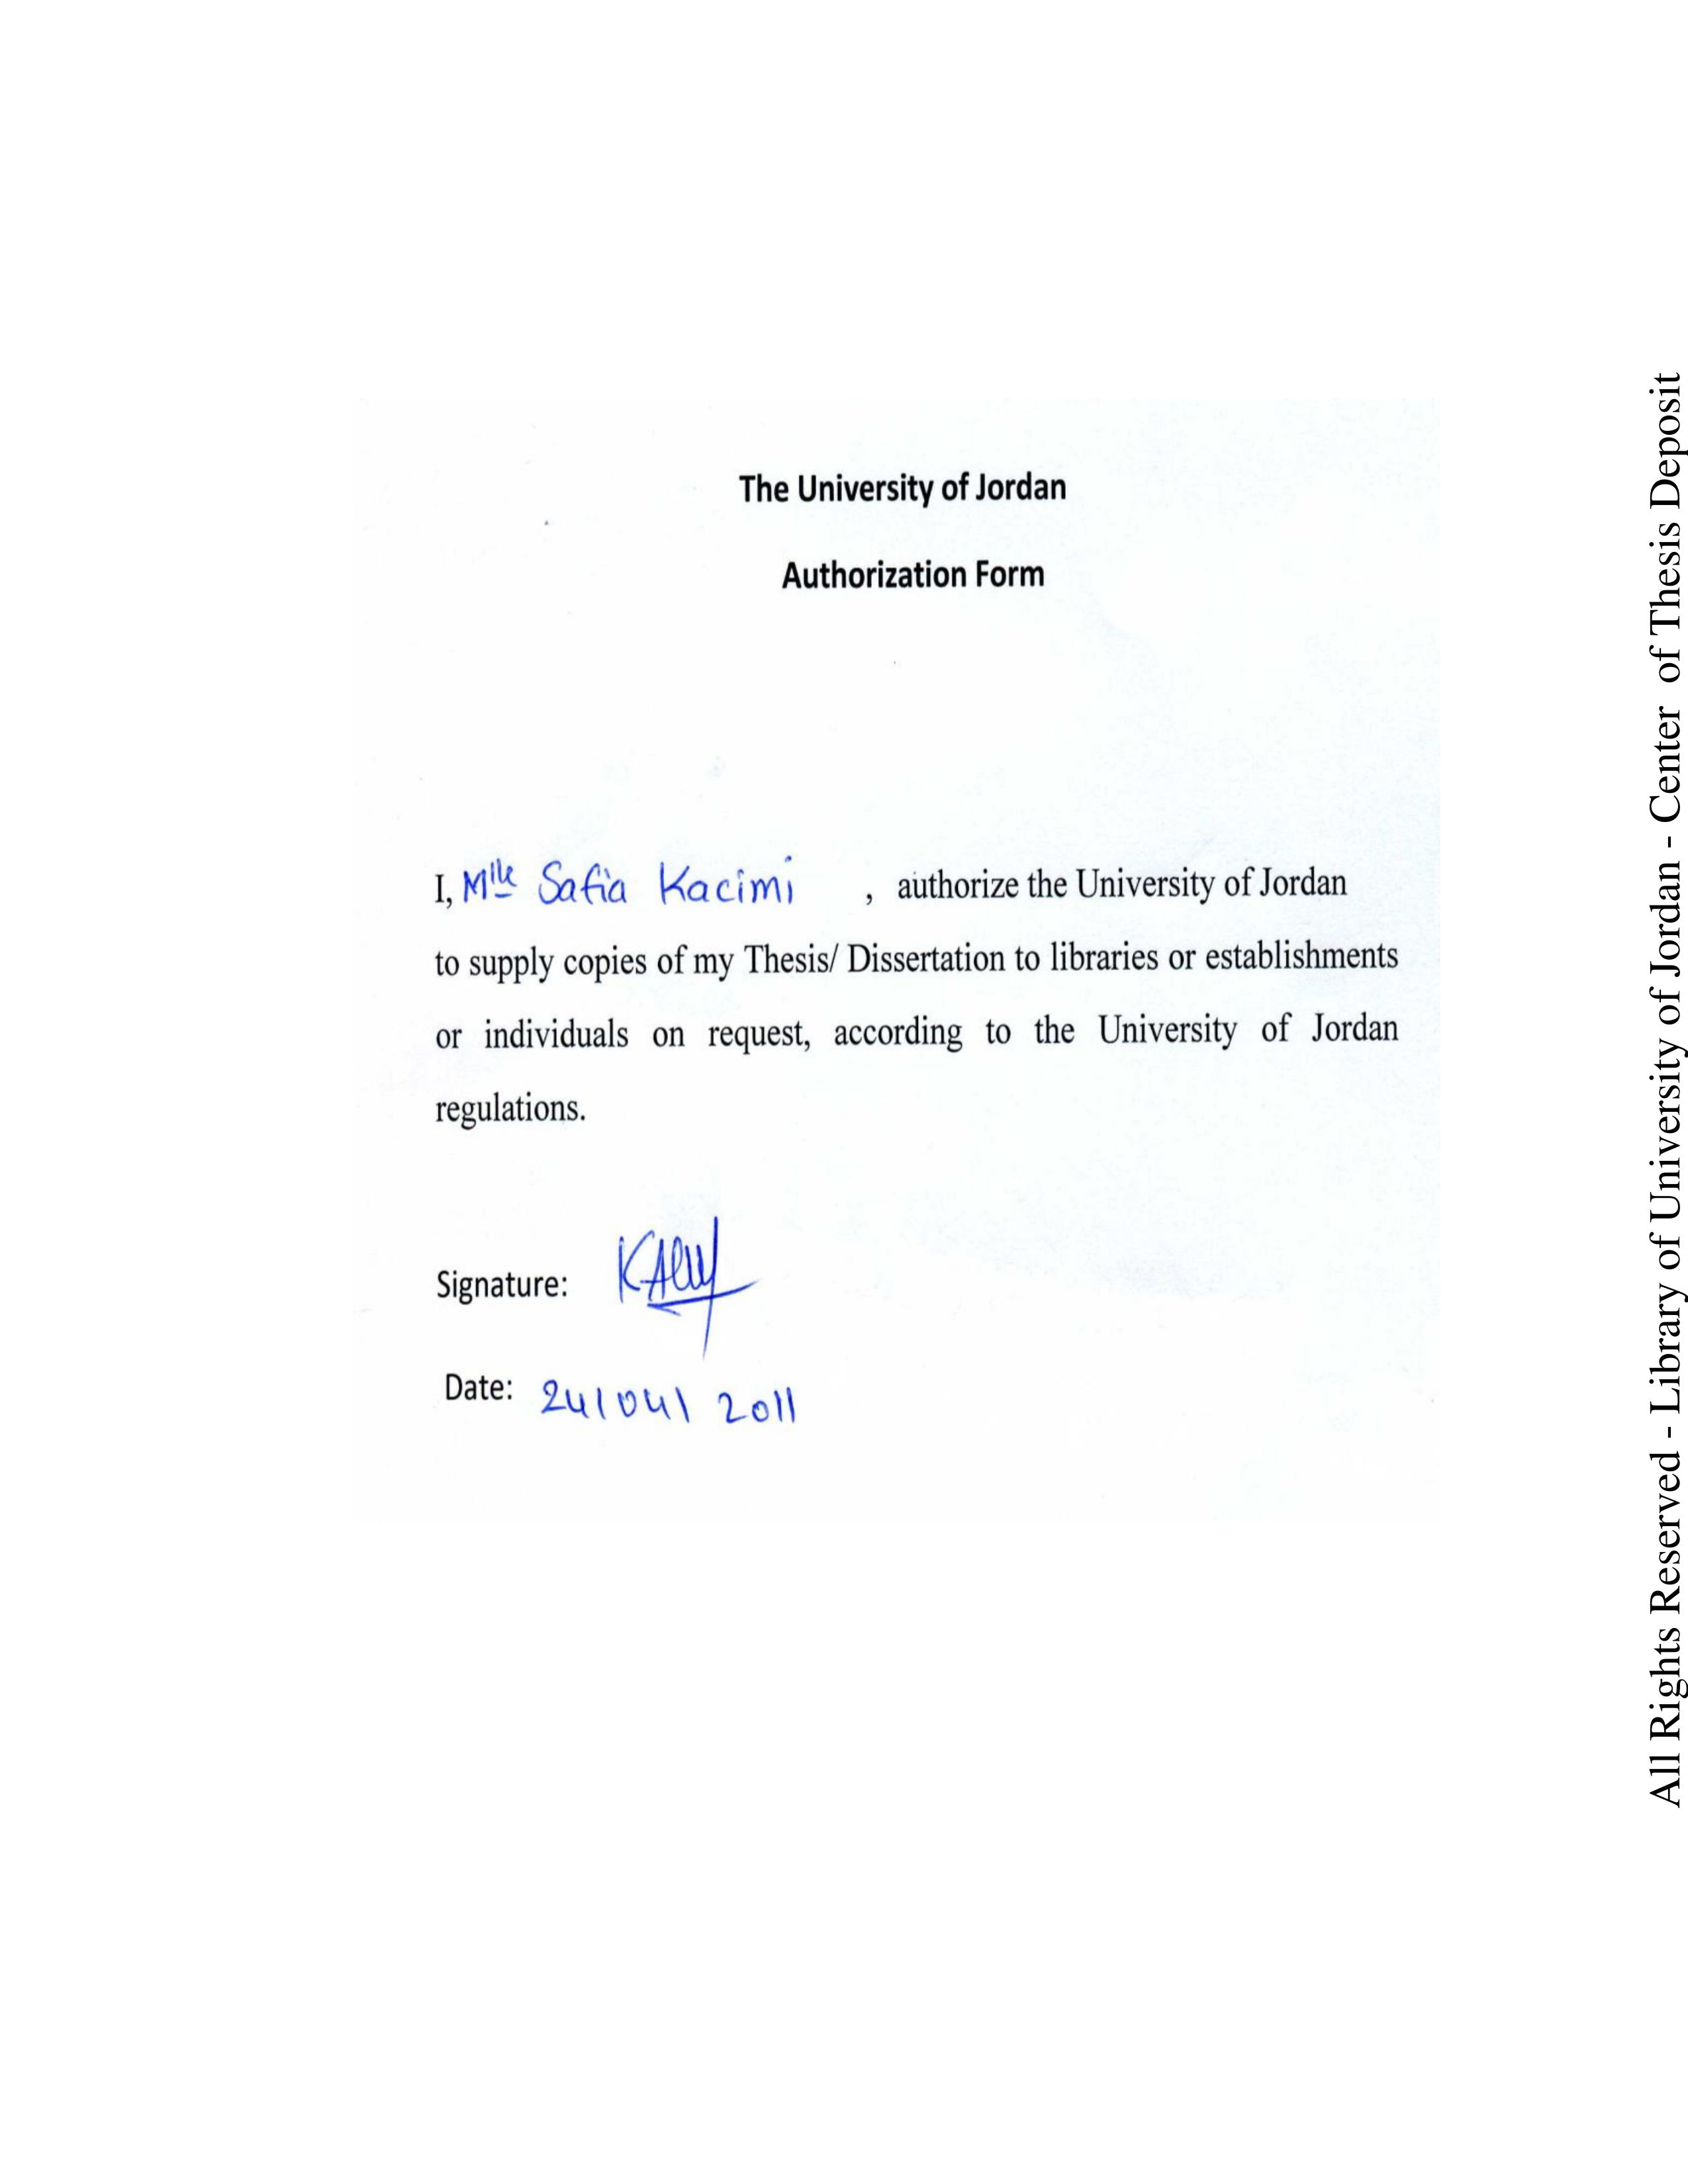 The University of Jordan
Authorization Form
I, Mlle Safia Kacimi , authorize the University of Jordan
to supply copies of my Thesis/ Dissertation to libraries or establishments
or individuals on request, according to the University of Jordan
regulations.
Signature:
Date: 24/04/2011
All Rights Reserved - Library of University of Jordan - Center of Thesis Deposit